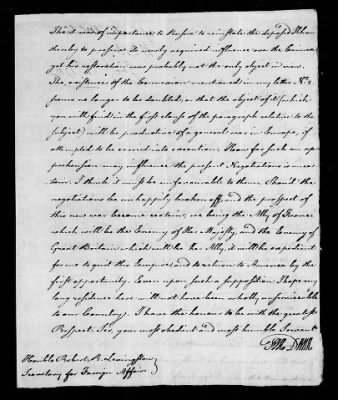 That it was of importance to Russia to reinstate the deposed Khan
thereby to preserve its newly acquired influence over the Crimea
yet his restoration was probably not the only object in view.
The existence of the Convention mentioned in my letter No. 2
seems no longer to be doubted, or that the object of it (which
you will find in the first clause of the paragraph relative to the
subject) will be productive of a general war in Europe, if
attempted to be carried into execution. How far such an ap-
prehension may influence the present Negotiations is uncer-
tain. I think it must be unfavourable to them. Should the
negotiations be unhappily broken off, and the prospect of
this new war become certain, we being the Ally of France
which will be the Enemy of her Majesty, and the Enemy of
Great Britain which will be her Ally, it will be expedient
for me to quit this Empire and to return to America by the
first opportunity. Even upon such a supposition I hope my
long residence here will not have been wholly unserviceable
to our Country. I have the honour to be with the greatest
Respect Sir, your most obedient and most humble Servant
Honble Robert R. Livingston
Secretary for Foreign Affairs